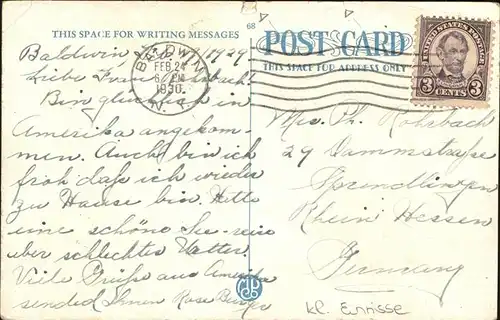 THIS SPACE FOR WRITING MESSAGES
68
POST CARD
THIS SPACE FOR ADDRESS ONLY
UNITED STATES POSTAGE
3 CENTS 3
BALDWIN
FEB 24
6 PM
1930
N.
Baldwin, 1929
Liebe Frau
Bin glücklich in
Amerika angekom-
men. Auch bin ich
froh daß ich wieder
zu Hause bin. Hatte
eine schöne See-reise
aber schlechtes Wetter.
Viele Grüße aus Amerika
sended Ihnen Rose
Mrs. Ph. Rohrbach
29 Dammstraße
Sprendlingen
Rhein Hessen
Germany
Kl. Ennisse